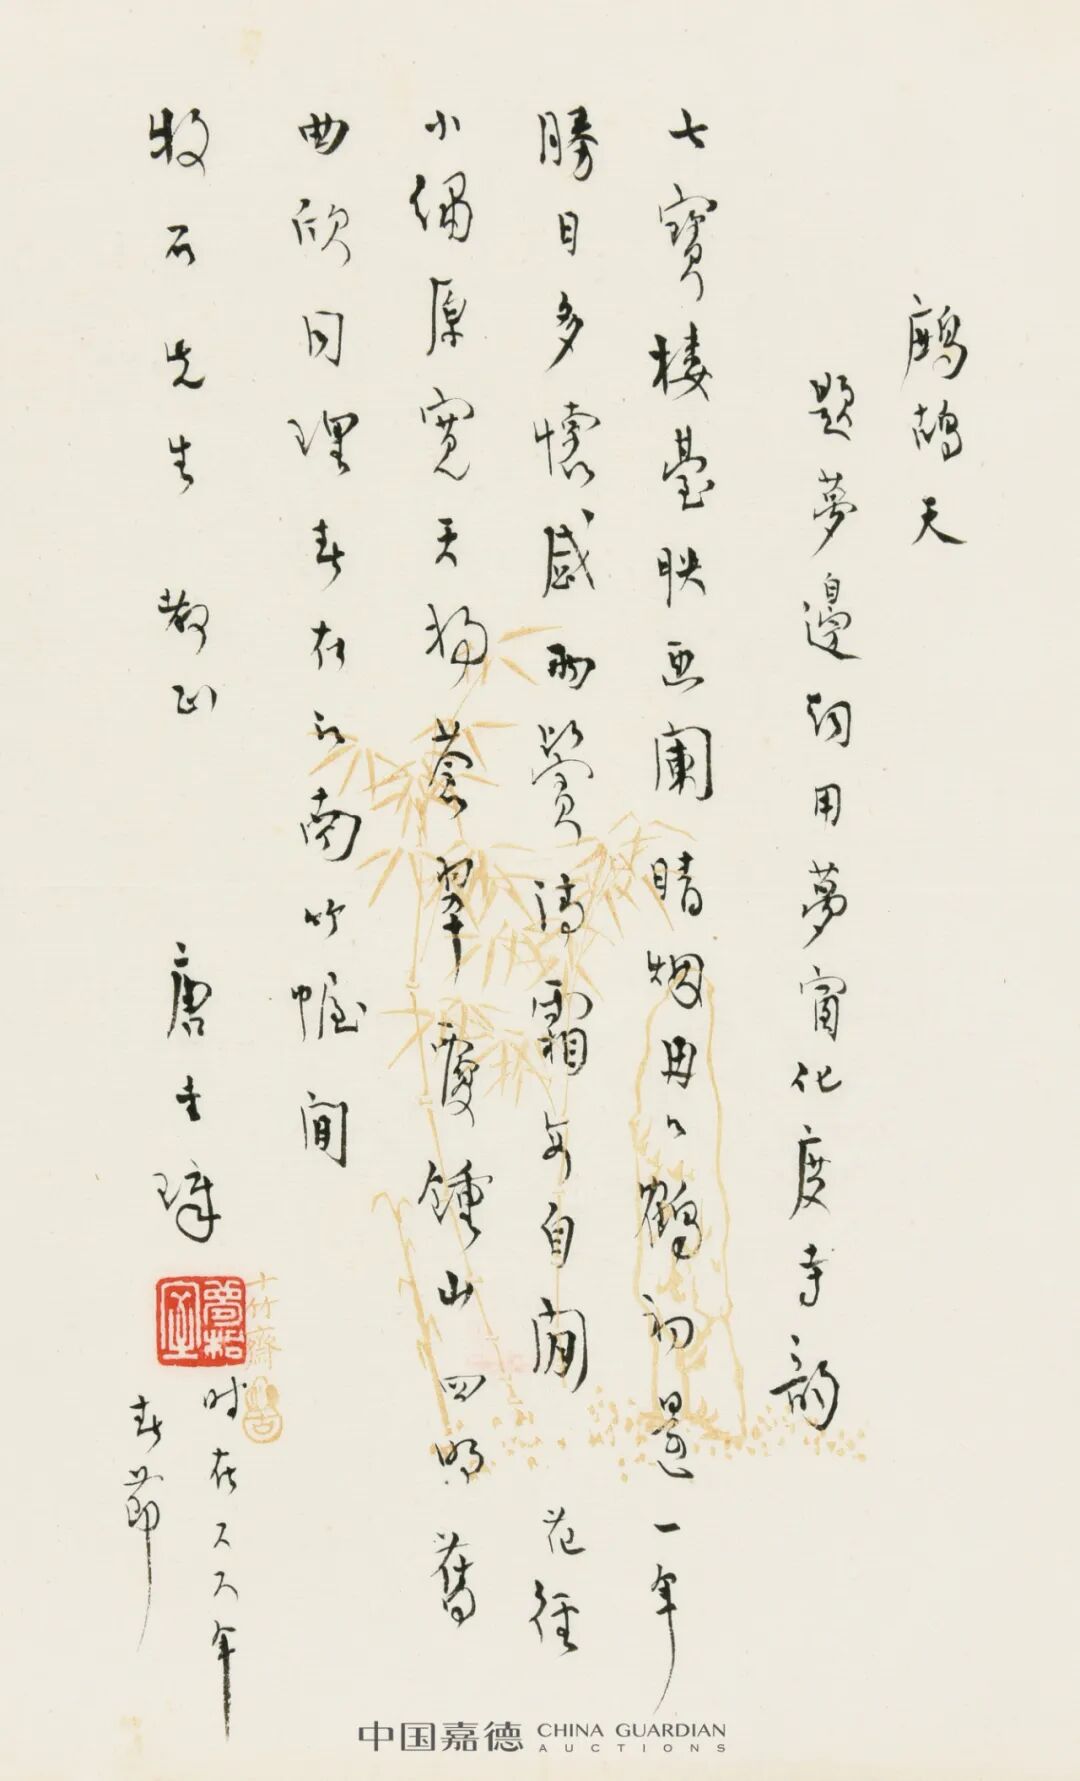 鷓鴣天
題夢邊詞用夢窗化度寺韵
七寶樓臺映亞闌晴烟冉々鶴初還一年
勝日多懷感兩鬢清霜每自閒 花徑
小繡原寬天將蒼翠覆鍾山四明舊
曲欣同理春在江南竹幄間
牧石先生 教正 唐圭璋
夢桐室
十竹齋
时在八八年
春節
中国嘉德 CHINA GUARDIAN AUCTIONS